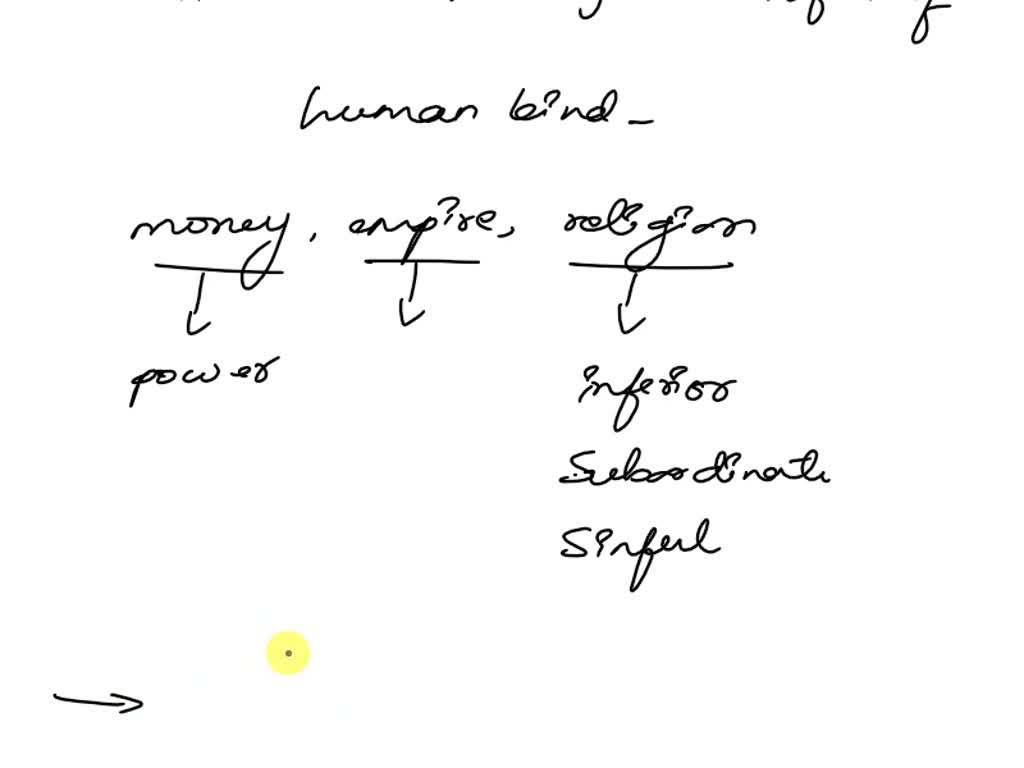 human kind -
money, empire, religion
power
inferior
Subordinate
Sinful